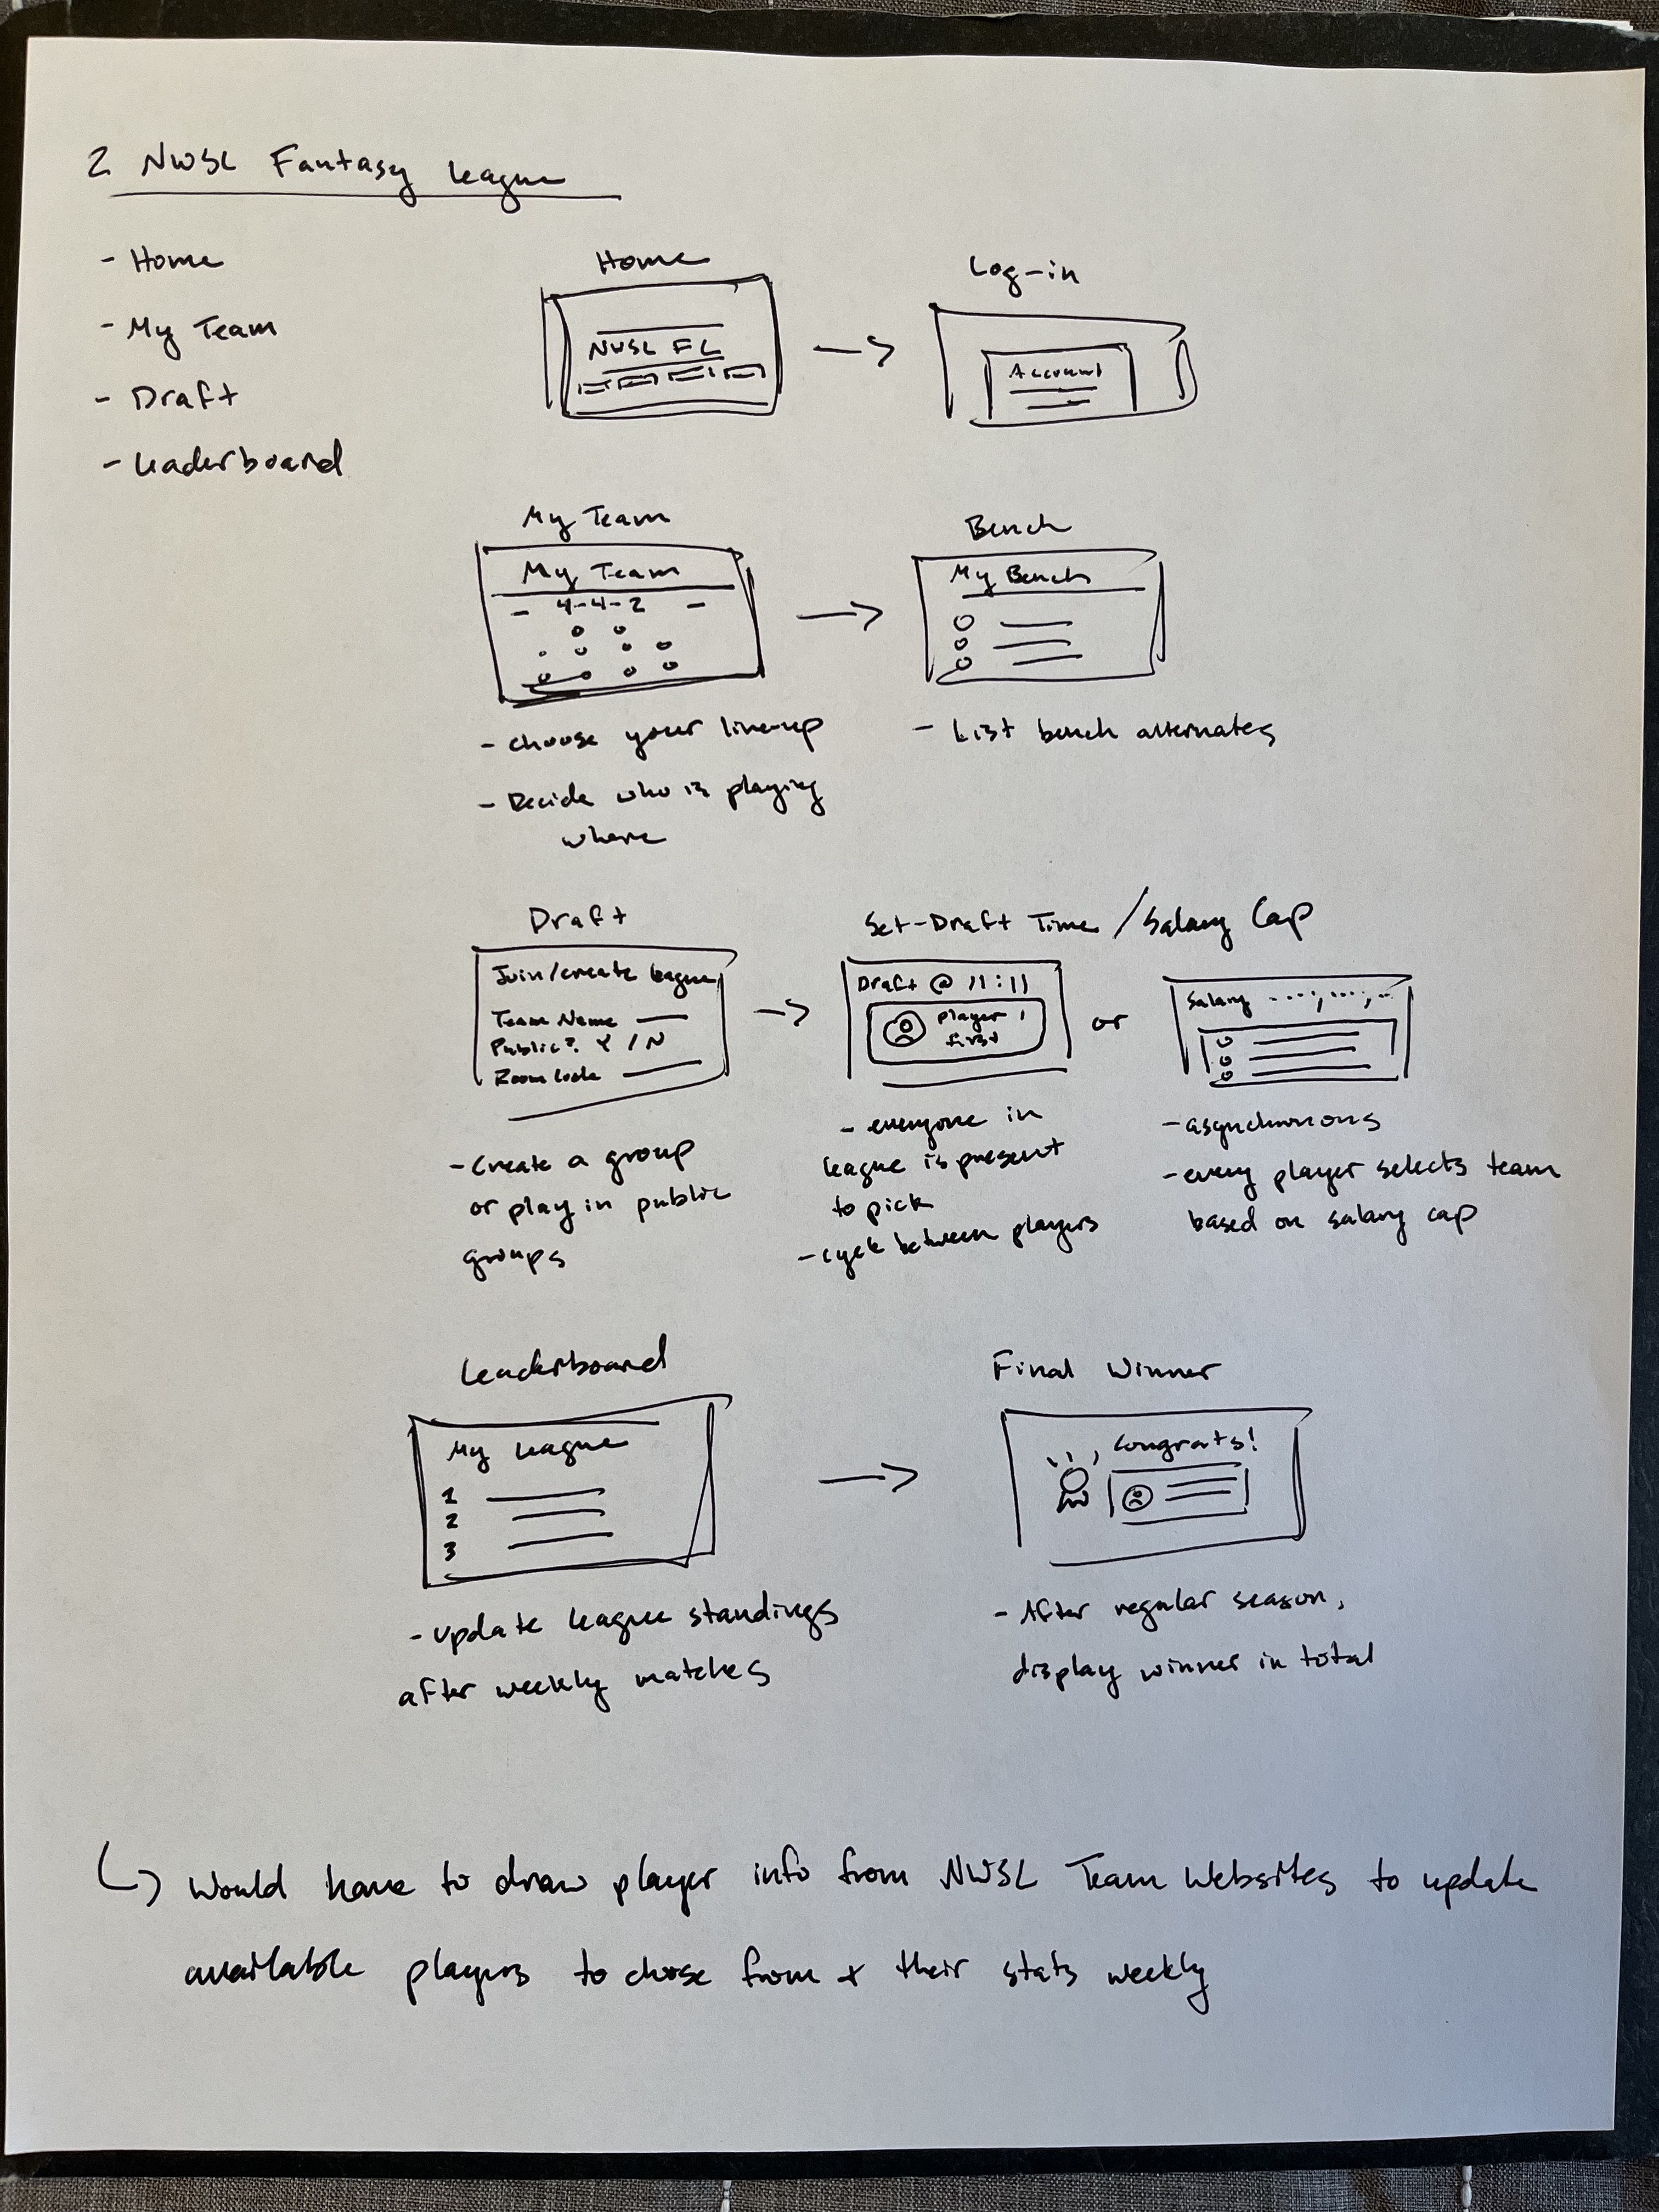 2 NWSL Fantasy League
- Home
- My Team
- Draft
- Leaderboard
Home
NWSL FL
Log-in
Account
My Team
My Team
- 4-4-2 -
- choose your line-up
- Decide who is playing
where
Bench
My Bench
- List bench alternates
Draft
Join/create league
Team Name
Public? Y / N
Room Code
- Create a group
or play in public
groups
Set-Draft Time / Salary Cap
Draft @ 11:11
player 1
first
or
Salary
- everyone in
league is present
to pick
- cycle between players
- asynchronous
- every player selects team
based on salary cap
Leaderboard
My League
1
2
3
- update league standings
after weekly matches
Final Winner
Congrats!
- After regular season,
display winner in total
Would have to draw player info from NWSL Team Websites to update
available players to chose from + their stats weekly